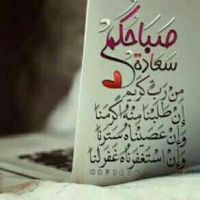 صباحكم
سعادة
من رب كريم
إن طلبنا منه أكرمنا
وإن عصيناه سترنا
وإن استغفرناه غفر لنا